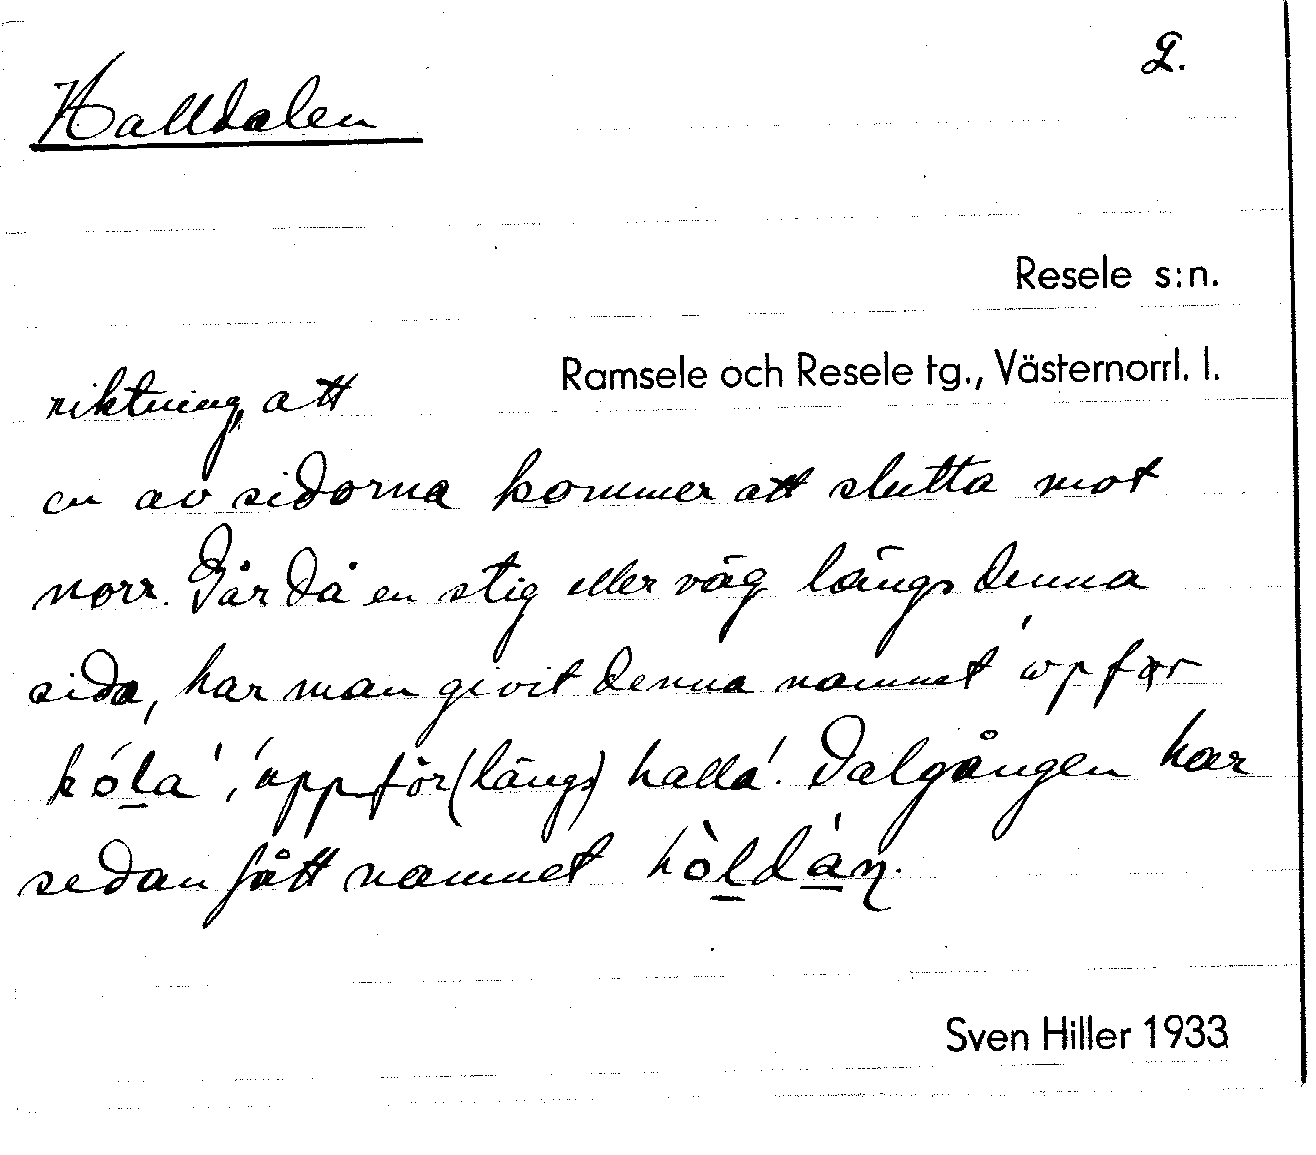 2.
Halldalen
Resele s:n.
Ramsele och Resele tg., Västernorrl. l.
riktning, att
en av sidorna kommer att slutta mot
norr. Går då en stig eller väg längs denna
sida, har man givit denna namnet 'opfær
hó̱la', 'uppför (längs) halla'. Dalgången har
sedan fått namnet hòḻdá̱ṇ.
Sven Hiller 1933